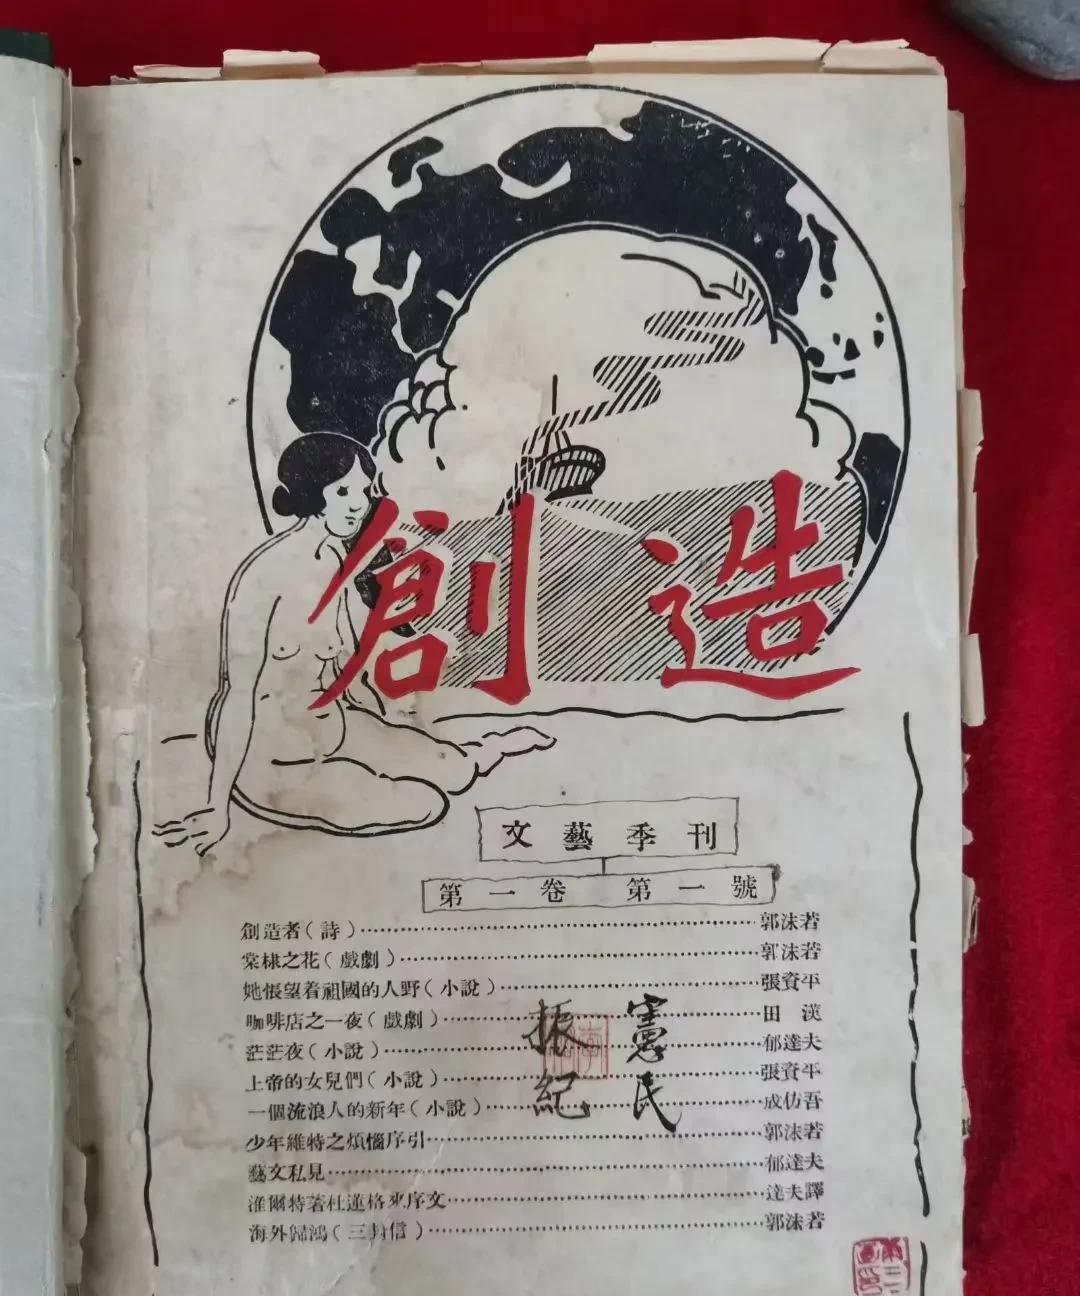 創造
文藝季刊
第一卷 第一號
創造者(詩)……郭沫若
棠棣之花(戲劇)……郭沫若
她悵望着祖國的人野(小說)……張資平
咖啡店之一夜(戲劇)……田漢
茫茫夜(小說)……郁達夫
上帝的女兒們(小說)……張資平
一個流浪人的新年(小說)……成仿吾
少年維特之煩惱序引……郭沫若
藝文私見……郁達夫
淮爾特著杜蓮格來序文……達夫譯
海外歸鴻(三封信)……郭沫若
憲民
振紀